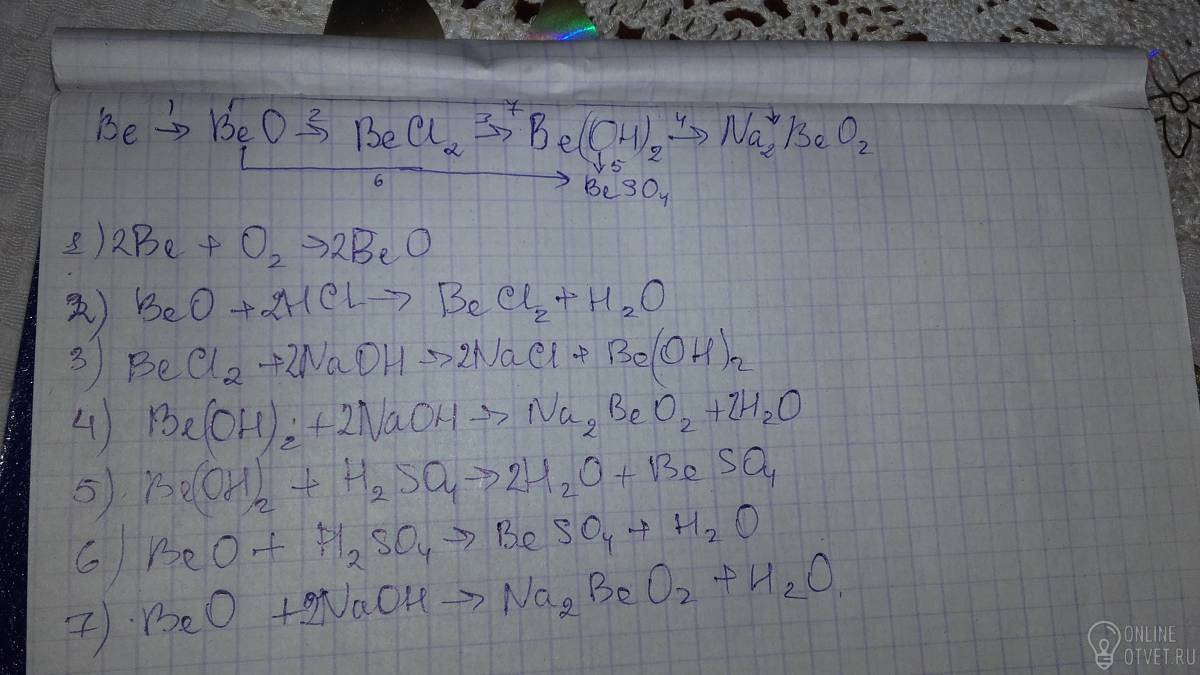 Be 1→ BeO 2→ BeCl₂ 3→ Be(OH)₂ 4→ Na₂BeO₂
7
↓5
6
BeSO₄
1) 2Be + O₂ → 2BeO
2) BeO + 2HCl → BeCl₂ + H₂O
3) BeCl₂ + 2NaOH → 2NaCl + Be(OH)₂
4) Be(OH)₂ + 2NaOH → Na₂BeO₂ + 2H₂O
5) Be(OH)₂ + H₂SO₄ → 2H₂O + BeSO₄
6) BeO + H₂SO₄ → BeSO₄ + H₂O
7) BeO + 2NaOH → Na₂BeO₂ + H₂O.
ONLINE
OTVET.RU